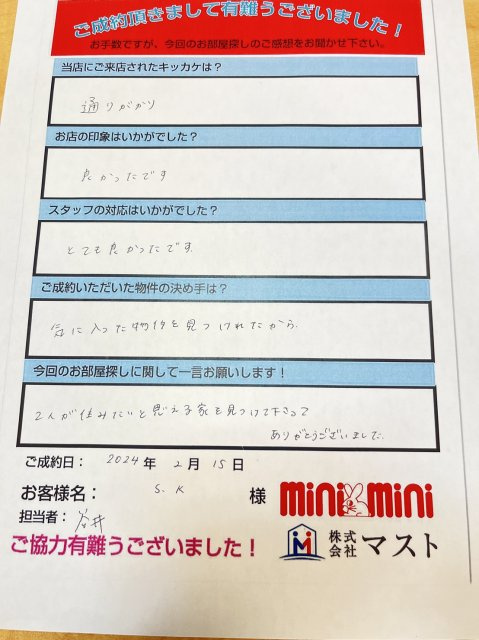 ご成約頂きまして有難うございました！
お手数ですが、今回のお部屋探しのご感想をお聞かせ下さい。
当店にご来店されたキッカケは？
通りがかり
お店の印象はいかがでした？
良かったです
スタッフの対応はいかがでした？
とても良かったです。
ご成約いただいた物件の決め手は？
気に入った物件を見つけれたから。
今回のお部屋探しに関して一言お願いします！
2人が住みたいと思える家を見つけて下さって
ありがとうございました。
ご成約日： 2024年 2月 15日
お客様名： S.K 様
担当者： 谷井
mini mini
ご協力有難うございました！
株式会社 マスト